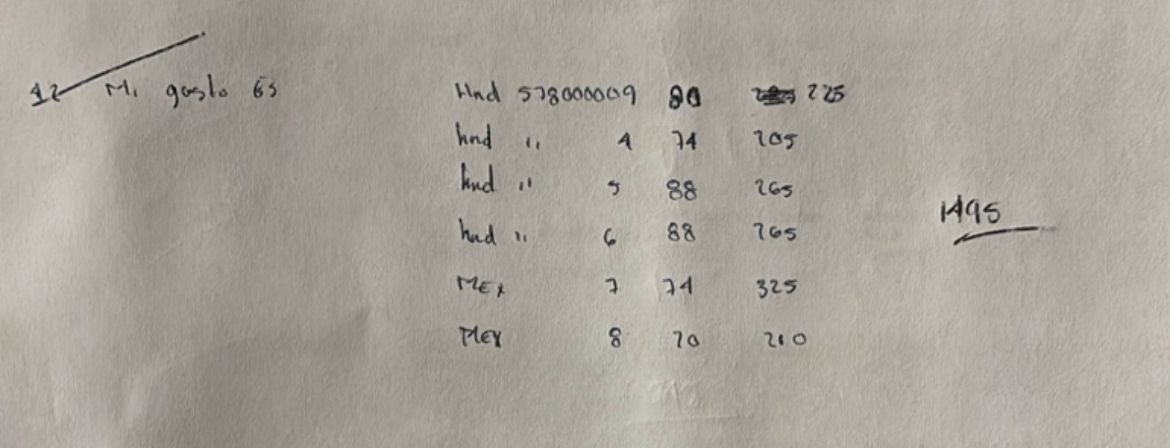 12 Mi gasto es Hnd 578000009 80 225
hnd " 4 74 205
hnd " 5 88 265
hnd " 6 88 265
1495
MEX 7 74 325
MEX 8 70 210